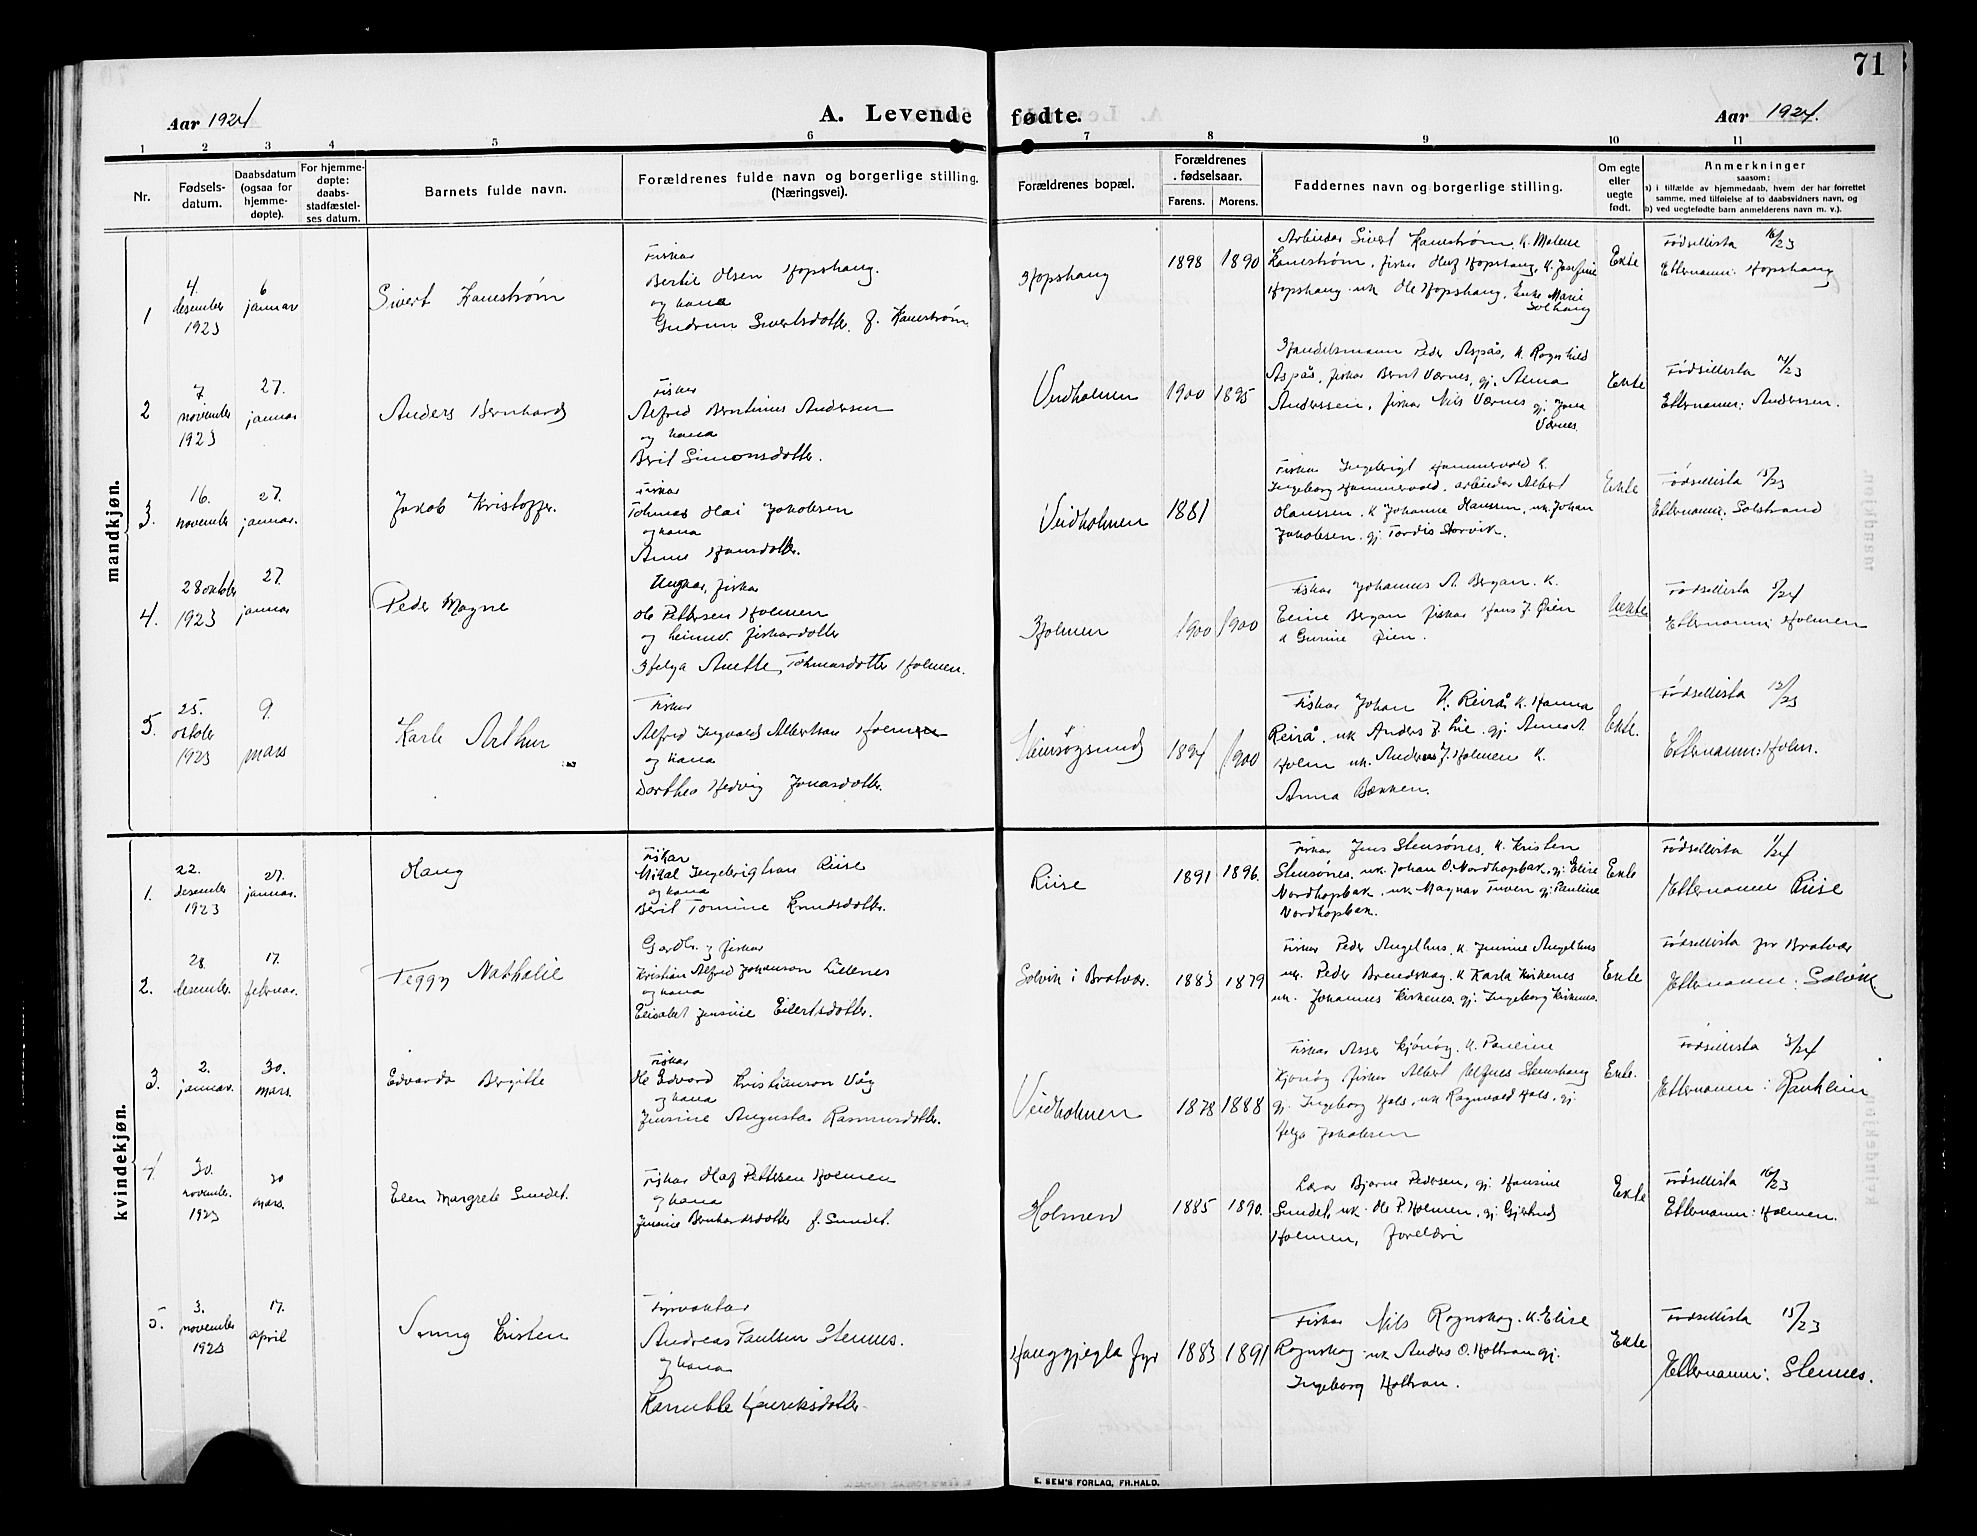 71
Aar 1924
A. Levende fødte.
Aar 1924.
1 2 3 4 5 6 7 8 9 10 11
Nr.
Fødsels-
datum.
Daabsdatum
(ogsaa for
hjemme-
døpte).
For hjemme-
døpte:
daabs-
stadfæstel-
ses datum.
Barnets fulde navn.
Forældrenes fulde navn og borgerlige stilling.
(Næringsvei).
Forældrenes bopæl.
Forældrenes
fødselsaar.
Farens.
Morens.
Faddernes navn og borgerlige stilling.
Om egte
eller
uegte
født.
Anmerkninger
saasom:
a) i tilfælde av hjemmedaab, hvem der har forrettet
samme, med tilføielse av to daabsvidners navn, og
b) ved uegtefødte barn anmelderens navn m. v.).
mandkjøn.
1
4.
desember
1923
6
januar
Sivert Kanestrøm
Fiskar
Bertil Olsen Hopshaug.
og kona
Gudrun Sivertsdotter. f. Kanestrøm.
Hopshaug
1898 1890
Arbeidar Sivert Kanestrøm, K. Malene
Kanestrøm, fiskar Olaf Hopshaug, K. Josefine
Hopshaug uk Ole Hopshaug, Enke Marie
Solhaug
Ekte
Fødsellista 16/23
Etternamn: Hopshaug
2
7
november
1923
27.
januar
Anders Bernhard
Fiskar
Alfred Berntinus Andersen
og kona
Berit Simonsdotter.
Veidholmen
1900 1895
Handelsmann Peder Aspås, K. Rognhild
Aspås, fiskar Bernt Værnes, gj. Anna
Anderssen, fiskar Nils Værnes gj. Jona
Værnes.
Ekte
Fødsellista 14/23
Etternamn: Anderssen.
3.
16.
november
27.
januar.
Jakob Kristoffer.
Fiskar
Tohmas Olai Jakobsen
og kona
Anne Hansdotter.
Veidholmen
1881
Fiskar Ingebrigt Hammervold K.
Ingeborg Hammervold, arbeidar Albert
Hanssen. K Johanna Hanssen, uk. Johan
Jakobsen. gj. Tordis Storvik.
Ekte
Fødsellista 15/23
Etternamn: Solstrand
4.
28 oktober
1923
27.
januar
Peder Magne
Ungkar, fiskar
Ole Pettersen Holmen
og fiskardotter
Helga Anette Tohmasdotter Holmen.
Holmen
1900 1900
Fiskar Johannes A. Bergan. K.
Eline Bergan fiskar Hans J. Øien
K Gurine Øien.
Uekte
Fødsellista 5/24
Etternamn: Holmen
5.
25.
oktober
1923
9.
mars
Karle Arthur
Fiskar
Alfred Ingvald Albertson Holmen
og kona
Dorthea Hedvig Jonasdotter.
1894 1900
Fiskar Johan K. Reirå K. Hanna
Reirå. uk Anders J. Lie. gj. Anna A.
Holm uk. Anders J. Holmen K.
Anna Bakken.
Ekte.
Fødsellista 12/23
Etternamn: Holm.
kvindekjøn.
1.
22.
desember
1923
27.
januar.
Haug
Fiskar
Mikal Ingebrigtson Riise
og kona
Berit Tomine Knudsdotter.
Riise
1891 1896.
Fiskar Jens Stensønes, K. Kristen
Stensønes. uk. Johan O. Nordhopbak, gj: Elise
Nordhopbak, uk. Magnar Tuven gj: Pauline
Nordhopbak.
Ekte
Fødsellista 1/24
Etternamn Riise
2.
28.
desember.
17.
februar.
Peggy Nathalie
Gardbr. og fiskar
Kristian Alfred Johanson Lillenes
og kona
Elisabet Jensine Eilertsdotter.
Solvik i Bratvær.
1883 1879
Fiskar Peder Angelhus, K. Jensine Angelhus
uk. Peder Brendskag. K Karla Kirkenes
uk. Johannes Kirkenes. gj. Ingeborg Kirkenes.
Ekte
Fødsellista for Bratvær
Etternamn: Solvik
3.
2.
januar.
30.
mars.
Edvarda Bergitte
Fiskar
Ole Edvard Kristianson Våg
og kona
Jensine Augusta Rasmusdotter.
Veidholmen
1878 1888
Fiskar Asser Kjønøy. K. Pauline
Kjønøy fiskar Albert Stenshaug
gj. Ingeborg Hals, uk Ragnvald Hals, gj.
Helga Jakobsen
Ekte.
Fødsellista 3/24
Etternamn:
4
30.
november.
1923
30
mars.
Elen Margrete Sundet.
Fiskar Olaf Pettersen Holmen
og kona
Jensine Bernhardsdotter f. Sundet.
Holmen
1885 1890.
Lærar Bjarne Pedersen, gj. Hansine
Sundet, uk. Ole P. Holmen, gj Gjertrud
Holmen, foreldri
Ekte
Fødsellista 16/23
Etternamn: Holmen.
5.
3.
november
1923
17.
april
Kristen
Fyrvaktar
Andreas Paulsen Stennes.
og kona
Henriksdotter.
Haugjegla fyr
1883 1891
Fiskar Nils Rognskog. K. Elise
Rognskog. uk Anders O. Holtran gj.
Ingeborg Holtran.
Ekte
Fødsellista 15/23
Etternamn: Stennes.
E. SEM'S FORLAG, FR.HALD.